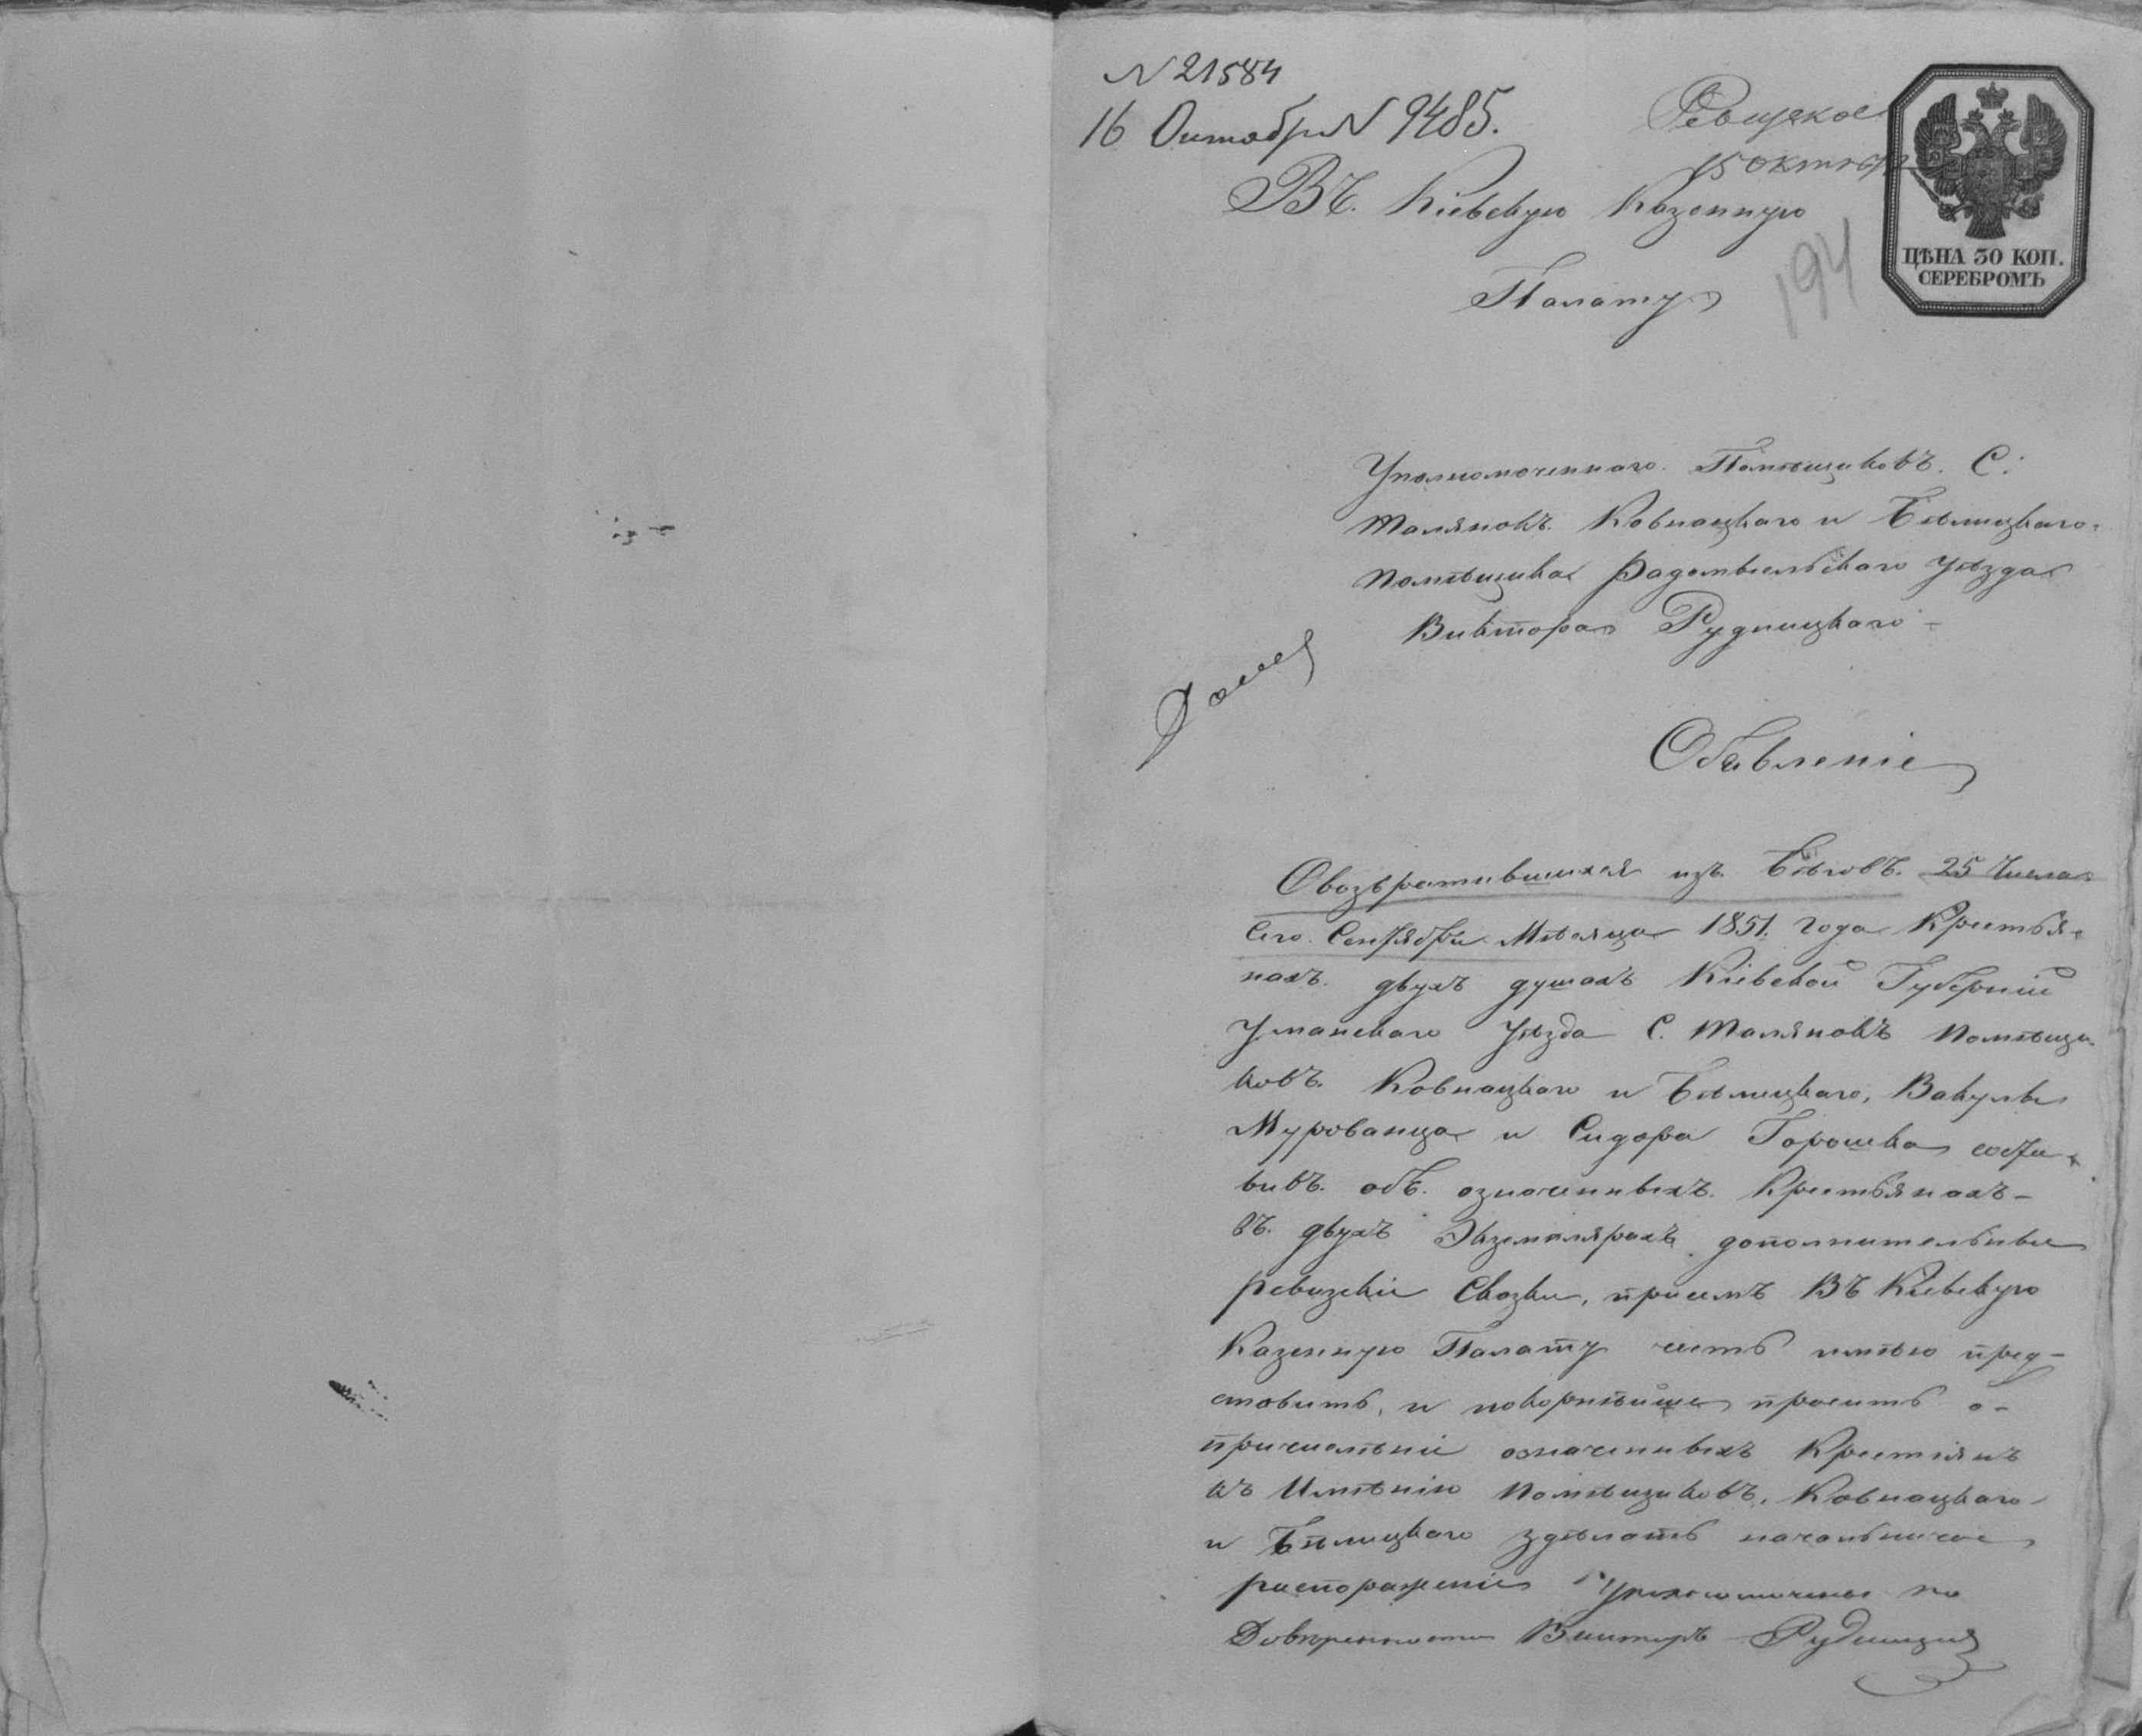 N 21584
16 Октября N 9485.
Ревизское
15 октября
ЦѢНА 30 КОП.
СЕРЕБРОМЪ
194
Въ Кіевскую Казенную
Палату
Уполномоченнаго Помѣщиковъ С:
Талянокъ Ковнацкаго и Бѣлицкаго
помѣщика Радомысльскаго уѣзда
Виктора Рудницкаго
Обявленіе
О возвратившихся изъ бѣговъ 25 Числа
сего Сентября Мѣсяца 1851. года Крестья-
нахъ двухъ душахъ Кіевской Губерніи
Уманскаго Уѣзда С. Талянокъ помѣщи-
ковъ Ковнацкаго и Бѣлицкаго, Вакулы
Мурованца и Сидора Горошка соста-
вивъ объ означенныхъ Крестьянахъ-
въ двухъ Экземплярахъ дополнительные
ревизскіе Сказки, присемъ Въ Кіевскую
Казенную Палату честь имѣю пред-
ставить, и покорнѣйше просить о-
причисленіи означенныхъ Крестіянъ
къ Имѣнію помѣщиковъ, Ковнацкаго
и Бѣлицкаго здѣлать начальничое
распоряженіе Уполномоченный по
Довѣренности Викторъ Рудницкій